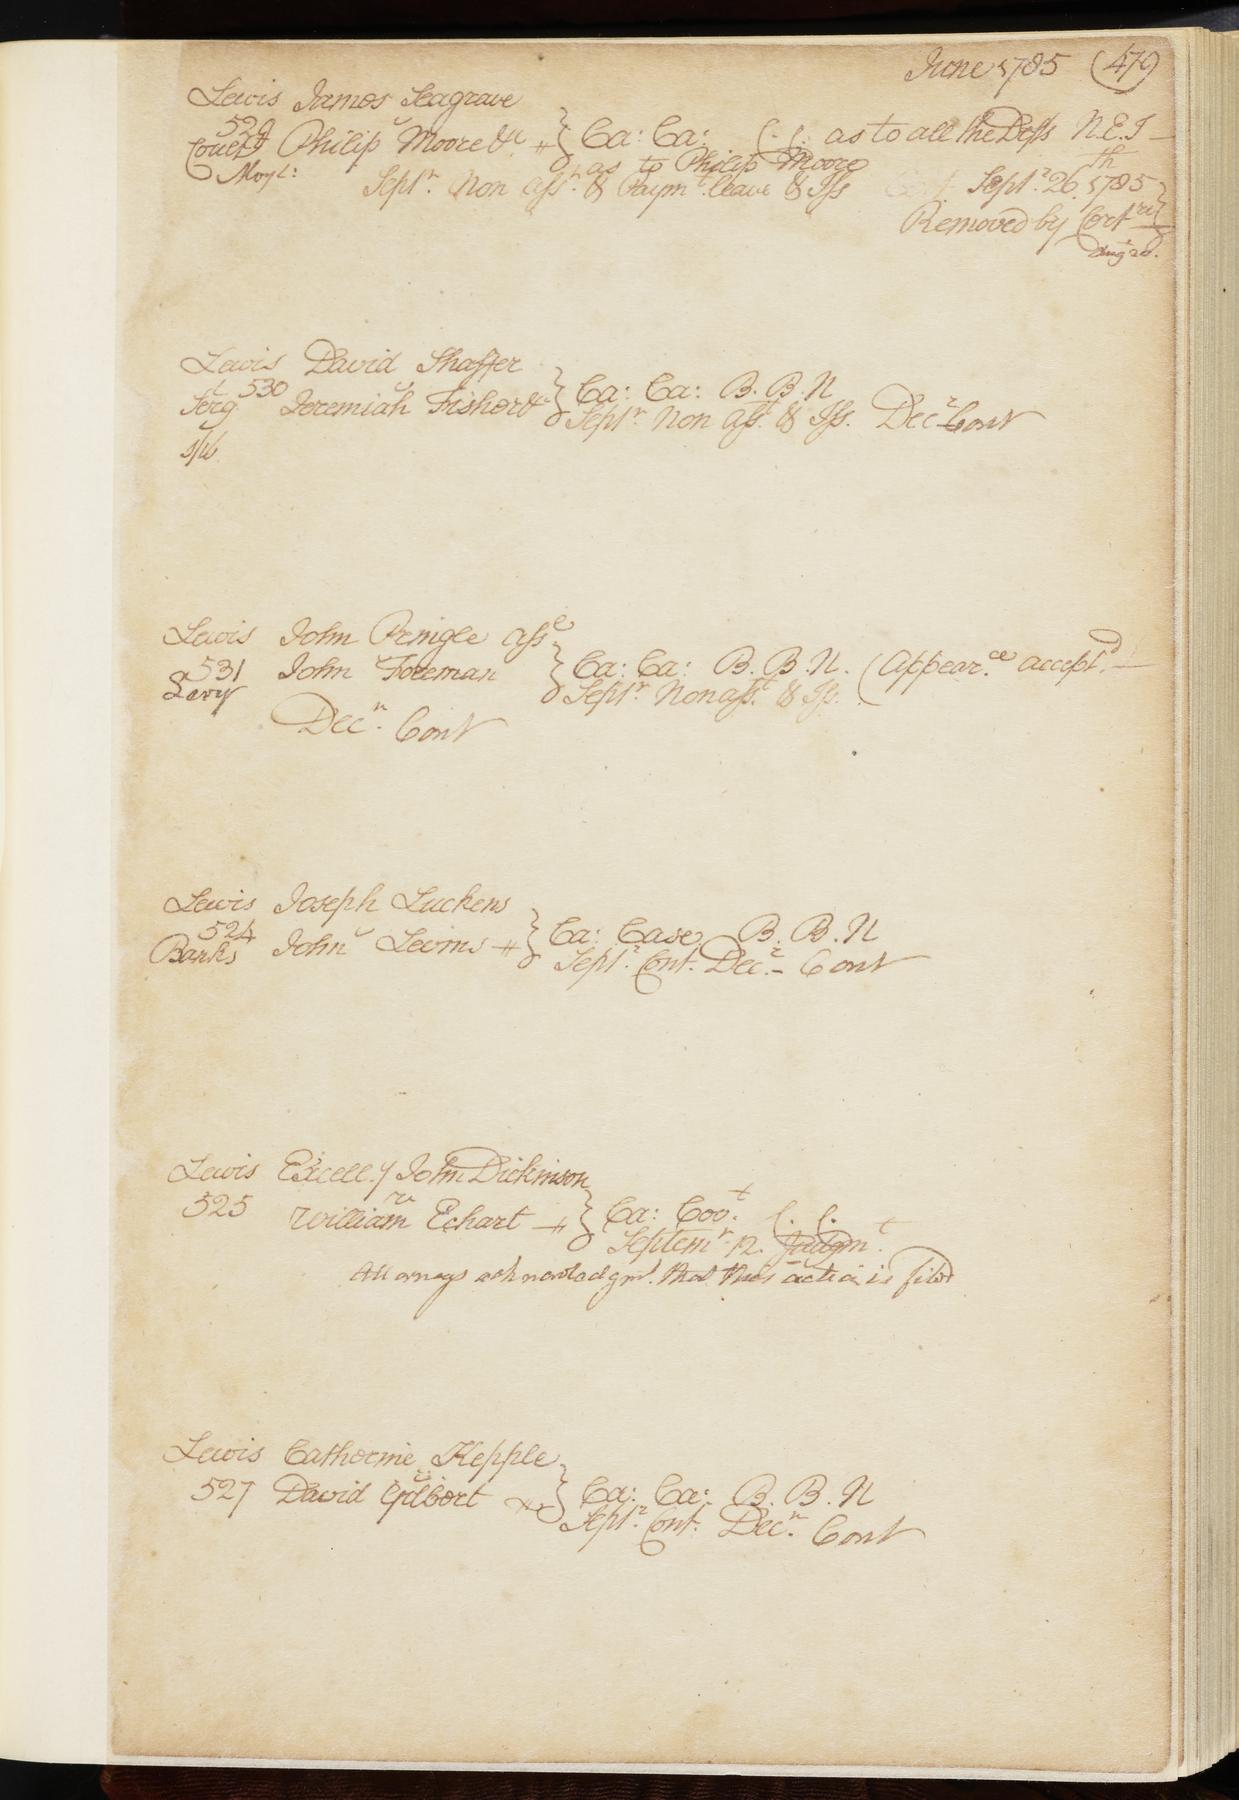 June 1785 (479)
Lewis James Seagrave
529 v
Couch Philip Moore &c # } Ca: Ca: C. C. as to all the Defts N.E.I
Moyl: as to Philip Moore
Septr. Non asst. & Paymt. leave & Iss Septr. 26th 1785
Removed by Cert
Augt 20.
Lewis David Shaffer
530 v
Serg Jeremiah Fisher } Ca: Ca: B. B. N
Septr. Non asst. & Iss. Decr Cont
Lewis John Pringle asse
531 v
Levy John Foreman } Ca: Ca: B. B. N. (Appear.ce accept.d
Septr. Non asst. & Iss.
Decr. Cont
Lewis Joseph Luckens
524 v
Banks John Levins # } Ca: Case B. B. N
Septr. Cont. Decr. Cont
Lewis Excell.y John Dickinson
525 v
William Echart # } Ca: Covt. C. C.
Septemr. 12. Judgmt.
Attorneys acknowledgmt. that this action is filed
Lewis Catherine Kepple
v
527 David Gilbert } Ca: Ca: B. B. N
Septr. Cont. Decr. Cont